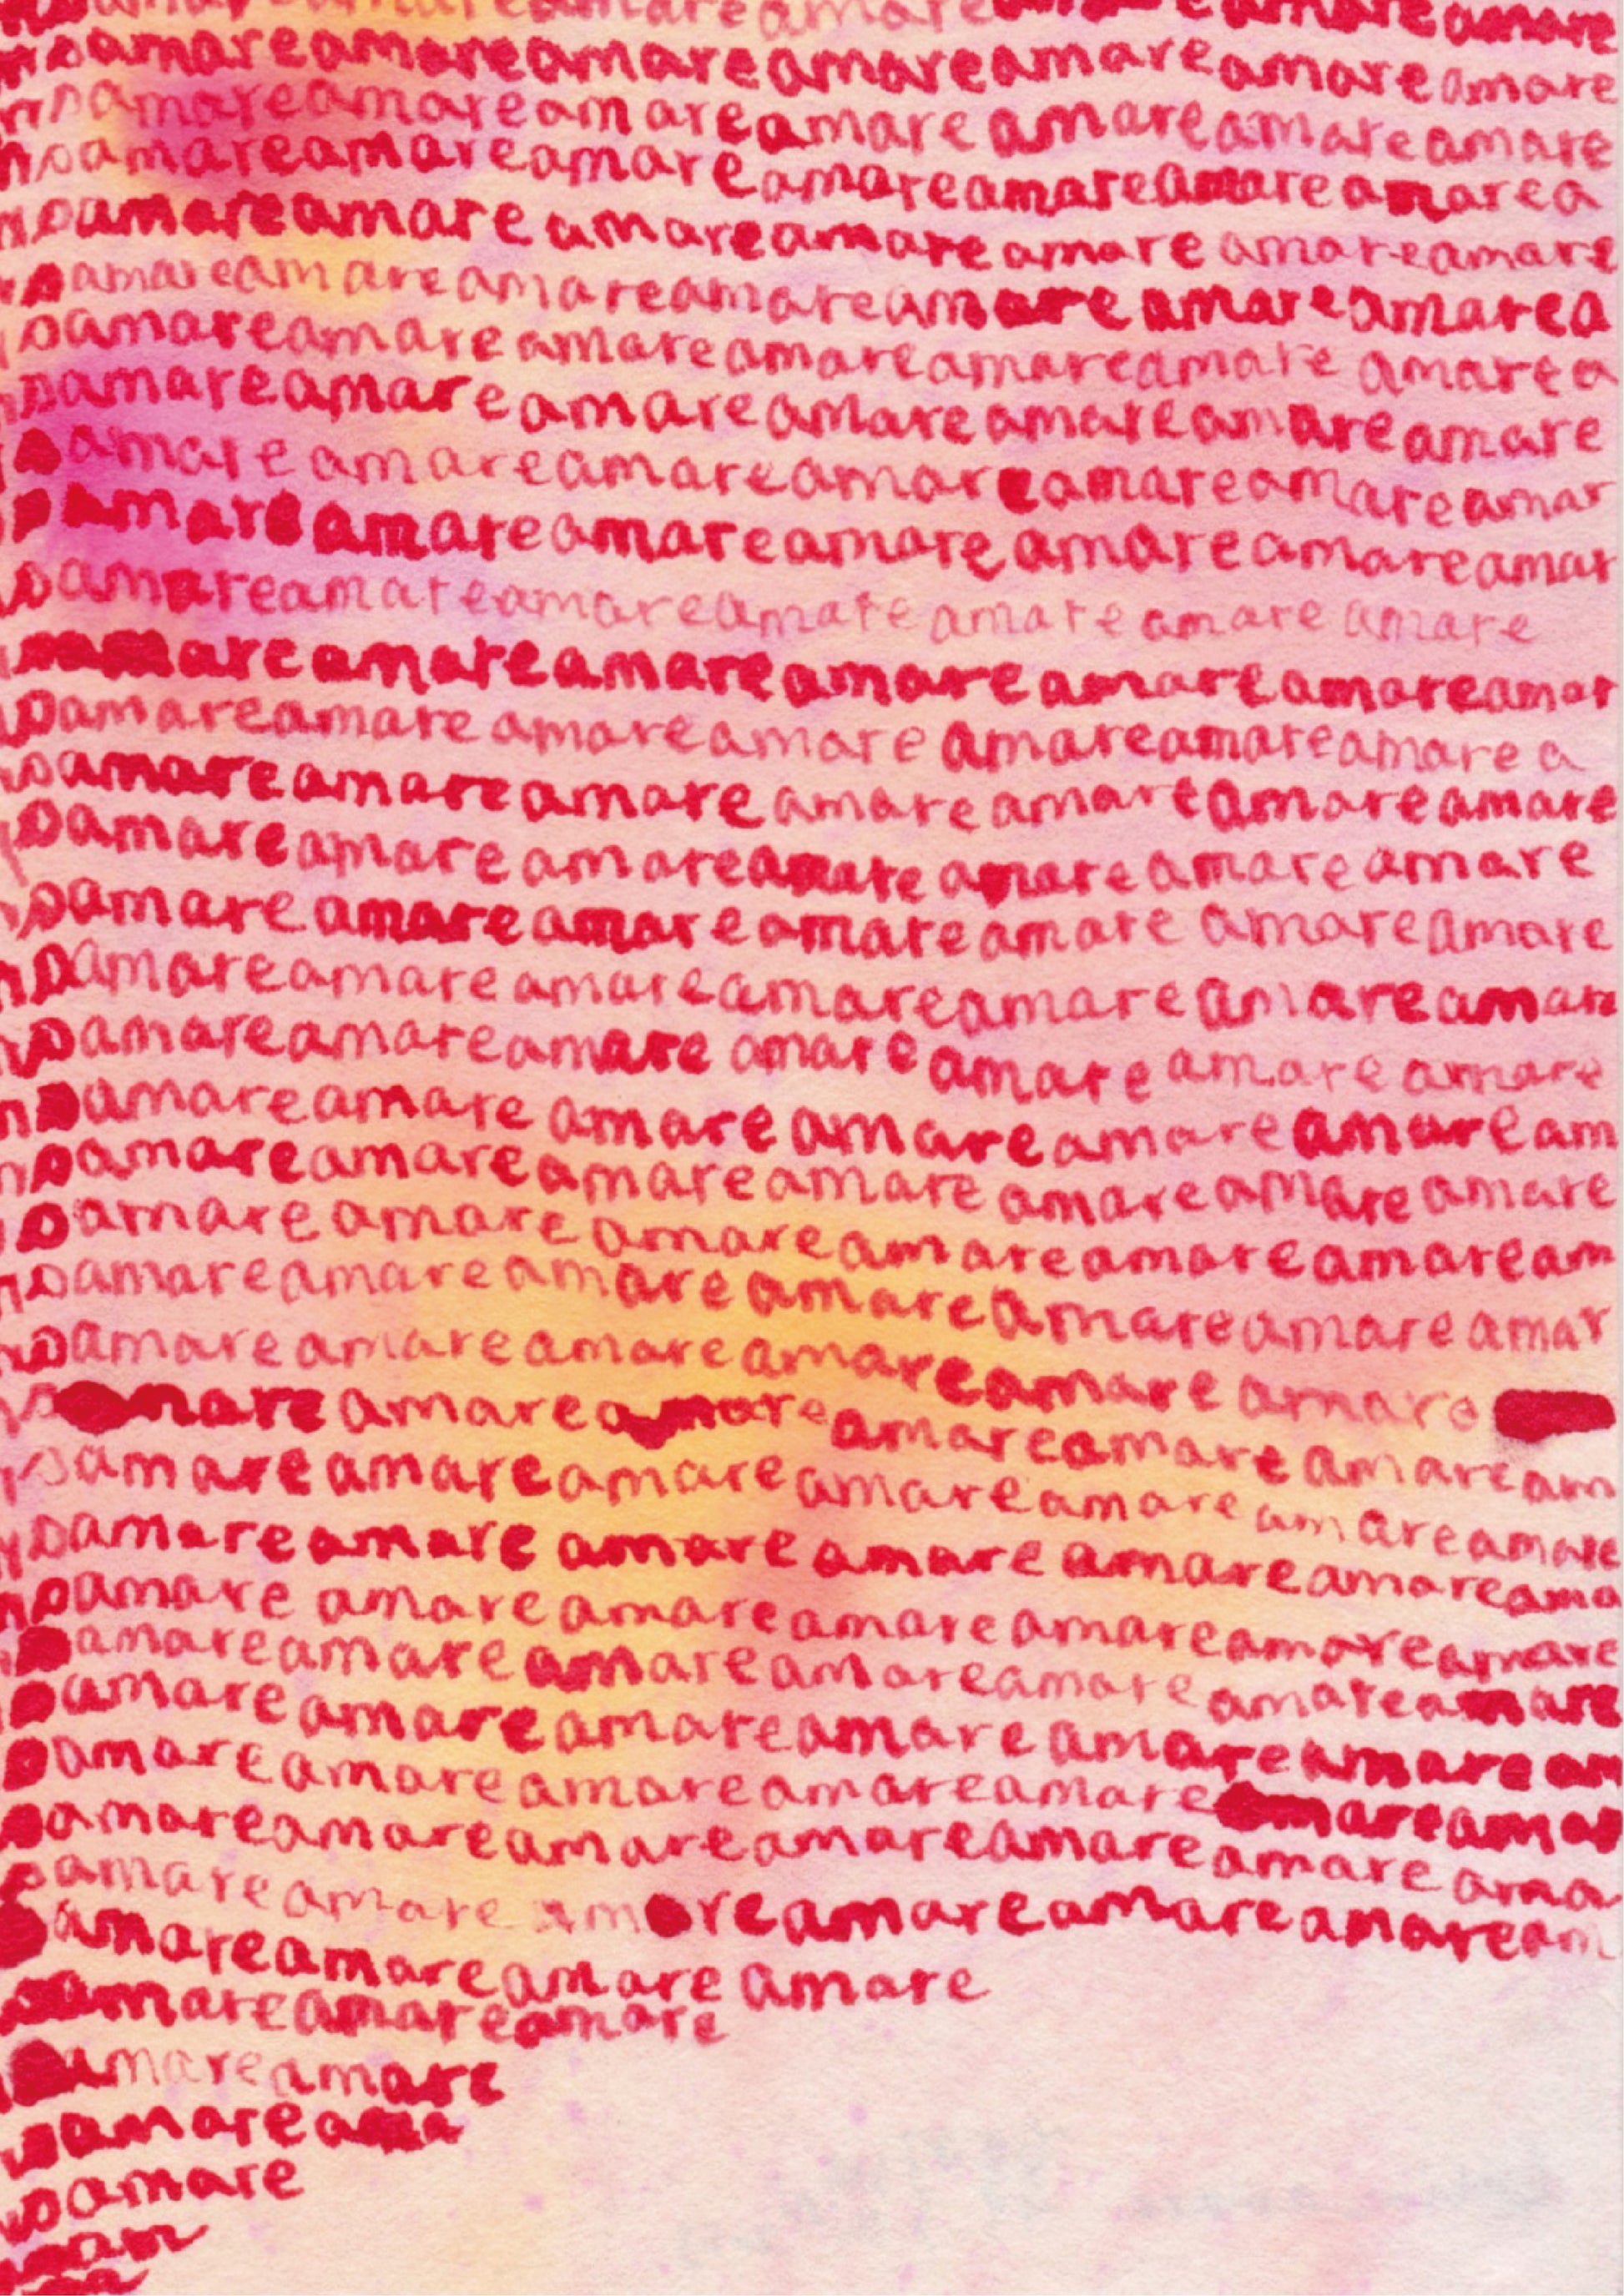 amareamareamareamare
amareamareamareamareamareamareamare
amareamareamareamareamareamareamare
amareamareamareamareamareamarea
amareamare amareamare amare amareamare
amareamareamareamareamare amareamarea
amareamareamareamareamareamare amarea
amareamareamareamareamareamareamare
amare amareamareamareamareamareamar
amareamareamareamareamareamareamar
amareamareamareamareamareamareamare
amareamareamareamareamareamar
amareamareamareamareamareamareamare a
amareamareamareamareamareamareamare
amareamareamareamareamareamareamare
amareamareamareamareamareamareamare
amareamareamareamareamareamareamar
amareamareamare amare amare amare amare
amareamare amare amareamareamaream
amareamareamareamare amareamareamare
amare amare amareamareamareamaream
amareamareamare amareamareamareamar
amareamareamareamareamareamare
mare amareamareamareamareamaream
amareamareamareamareamareamareamare
amareamare amare amare amareamareama
amare amareamareamareamareamareamare
amareamareamareamareamareamareamare
amareamareamareamare amareamaream
amareamareamareamareamareamareamar
amareamareamareamareamareamare ama
amareamare amareamareamareamaream
amareamareamare amare
amareamareamare
amareamare
amareama
amare